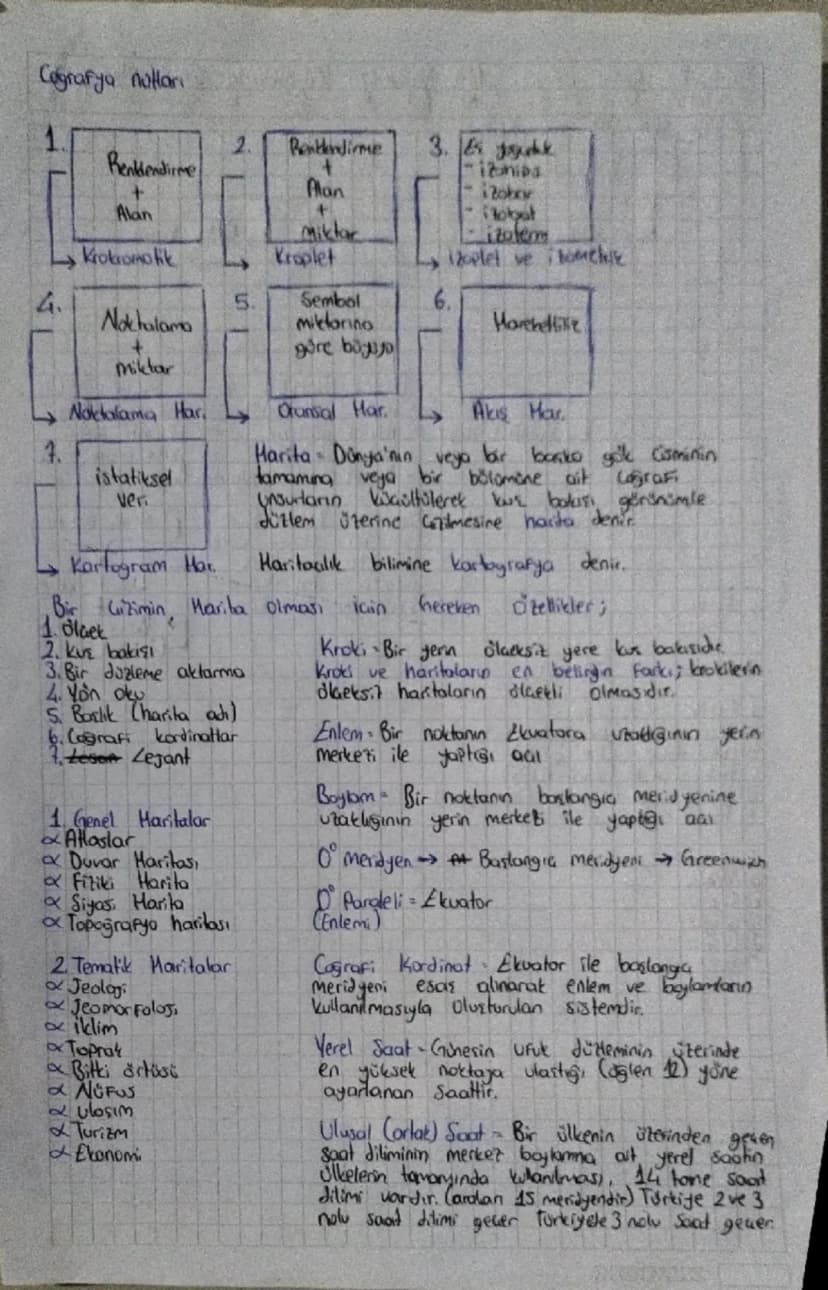 Coğrafya notları
1.
Renklendirme
+
Alan
Krokromatik
2.
Renklendirme
+
Alan
+
miktar
Kroplet
3.
- izohips
- izobar
- izoterm
izoplet ve izometrik
4.
Noktalama
+
miktar
Noktalama Har.
5.
Sembol
miktarına
göre büyüyo
Oransal Har.
6.
Hareketlilik
Akış Har.
7.
istatiksel
veri
Kartogram Har.
Harita = Dünya'nın veya bir başka gök cisminin
tamamına veya bir bölümüne ait coğrafi
unsurların küçültülerek kuş bakışı görünümle
düzlem üzerine çizilmesine harita denir.
Haritacılık bilimine kartografya denir.
Bir çizimin, Harita olması için gereken özellikler;
1. Ölçek
2. Kuş bakışı
3. Bir düzleme aktarma
4. Yön oku
5. Başlık (harita adı)
6. Coğrafi kordinatlar
7. Lejant
Kroki = Bir yerin ölçeksiz yere kuş bakışıdır.
Kroki ve haritaların en belirgin farkı; krokilerin
ölçeksiz haritaların ölçekli olmasıdır.
Enlem = Bir noktanın Ekvatora uzaklığının yerin
merkezi ile yaptığı açı
Boylam = Bir noktanın başlangıç meridyenine
uzaklığının yerin merkezi ile yaptığı açı
0° meridyen → Başlangıç meridyeni → Greenwich
0° Paraleli = Ekvator
(Enlemi)
1. Genel Haritalar
∝ Atlaslar
∝ Duvar Haritası
∝ Fiziki Harita
∝ Siyasi Harita
∝ Topoğrafya haritası
2. Tematik Haritalar
∝ Jeoloji
∝ Jeomorfoloji
∝ iklim
∝ Toprak
∝ Bitki örtüsü
∝ Nüfus
∝ ulaşım
∝ Turizm
∝ Ekonomi
Coğrafi Kordinat = Ekvator ile başlangıç
meridyeni esas alınarak enlem ve boylamların
kullanılmasıyla oluşturulan sistemdir.
Yerel Saat = Güneşin ufuk düzleminin üzerinde
en yüksek noktaya ulaştığı (öğlen 12) yöne
ayarlanan saattir.
Ulusal (ortak) Saat = Bir ülkenin üzerinden geçen
saat diliminin merkez boylamına ait yerel saatin
ülkelerin tamamında kullanılması. 14 tane saat
dilimi vardır. (araları 15 meridyendir) Türkiye 2 ve 3
nolu saat dilimi geçer Türkiyede 3 nolu saat geçer